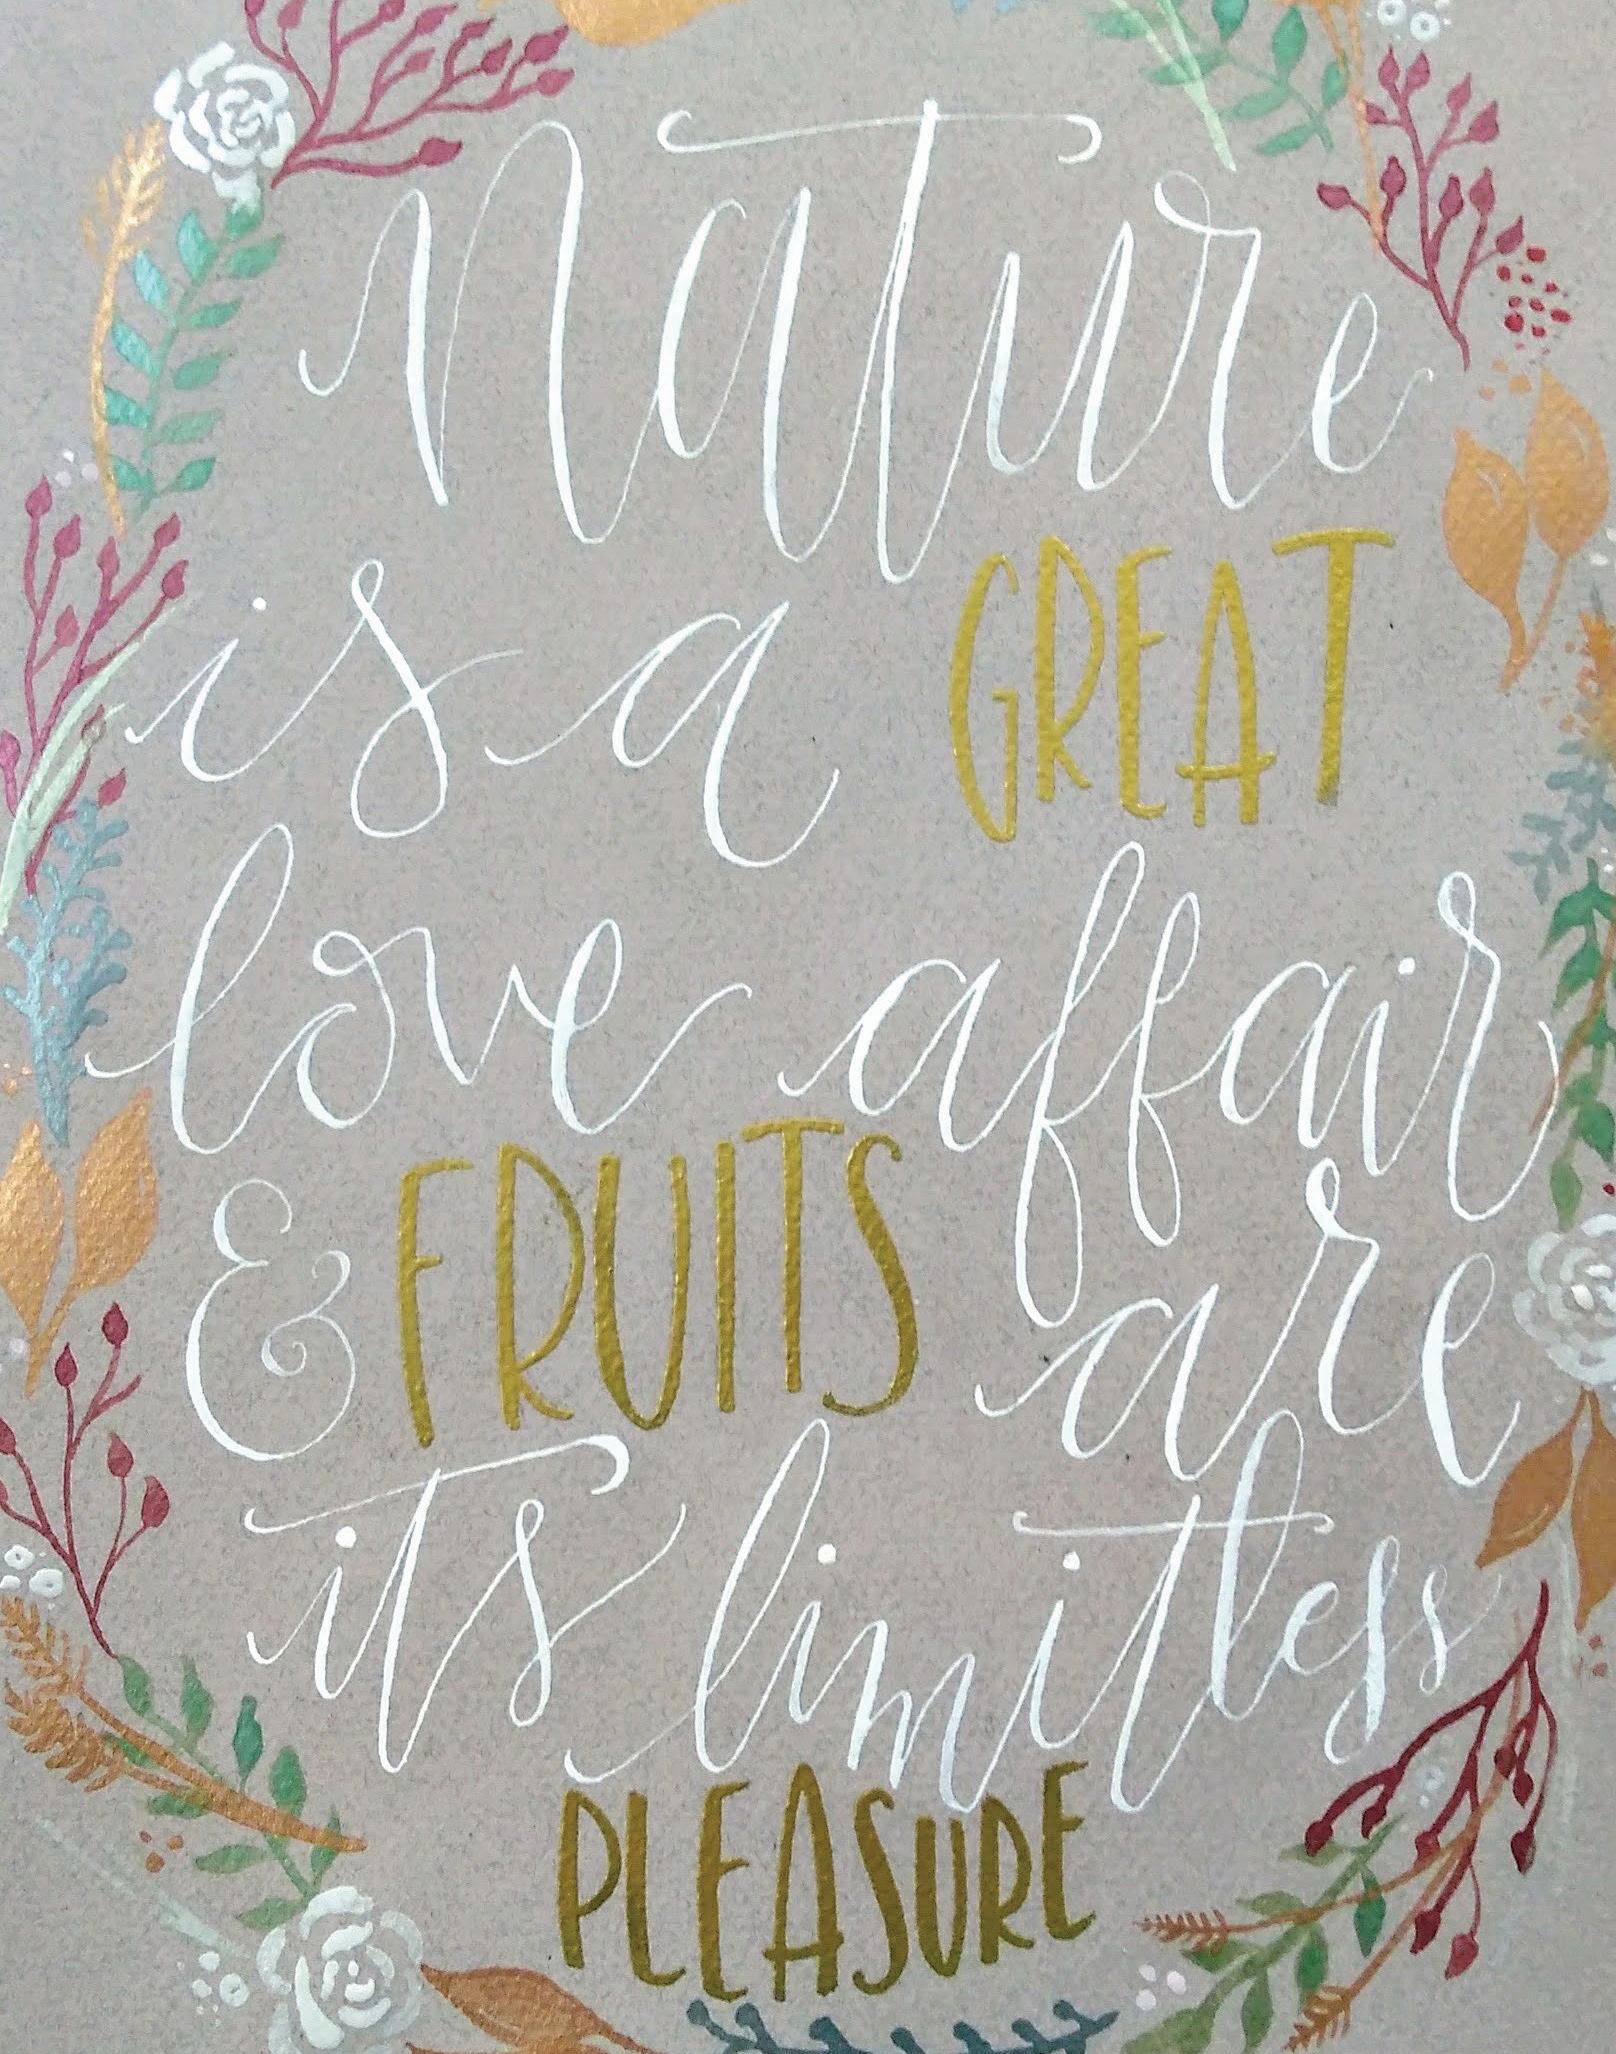 Nature
is a GREAT
love affair
& FRUITS are
its limitless
PLEASURE